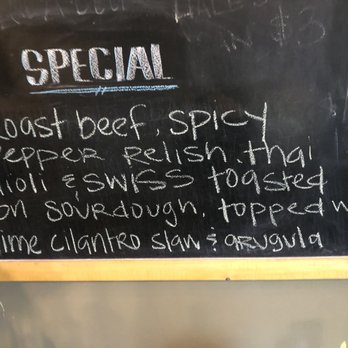 SPECIAL
oast beef, spicy
epper relish, thai
ioli & swiss toasted
on sourdough, topped w
lime cilantro slaw & arugula